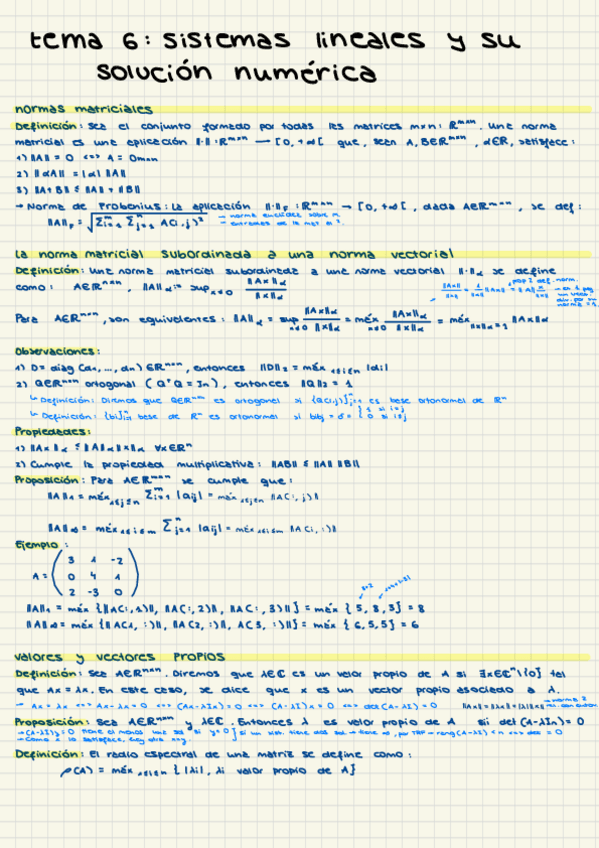 tema 6: sistemas lineales y su
solución numérica
normas matriciales
Definición: Sea el conjunto formado por todas las matrices mxn: ℝᵐˣⁿ. Una norma
matricial es una aplicación ‖·‖: ℝᵐˣⁿ → [0, +∞[ que, sean A, B∈ℝᵐˣⁿ, α∈ℝ, satisface:
1) ‖A‖ = 0 <=> A = 0mxn
2) ‖αA‖ = |α| ‖A‖
3) ‖A+B‖ ≤ ‖A‖ + ‖B‖
→ Norma de Frobenius: La aplicación ‖·‖F : ℝᵐˣⁿ → [0, +∞[, dada A∈ℝᵐˣⁿ, se def:
‖A‖F = √(Σᵐᵢ₌₁ Σⁿⱼ₌₁ A(i,j)²) → norma euclídea sobre
La norma matricial subordinada a una norma vectorial
Definición: Una norma matricial subordinada a una norma vectorial ‖·‖α se define
como: A∈ℝᵐˣⁿ, ‖A‖α := sup x≠0 ‖Ax‖α / ‖x‖α
Para A∈ℝᵐˣⁿ, son equivalentes: ‖A‖α = sup x≠0 ‖Ax‖α / ‖x‖α = máx x≠0 ‖Ax‖α / ‖x‖α = máx ‖x‖α=1 ‖Ax‖α
Observaciones:
1) D = diag (d1, ..., dn) ∈ℝⁿˣⁿ, entonces ‖D‖2 = máx 1≤i≤n |di|
2) Q∈ℝⁿˣⁿ ortogonal (QᵗQ = In), entonces ‖Q‖2 = 1
↳ Definición: Diremos que Q∈ℝⁿˣⁿ es ortogonal si {Q(:,j)}ⁿⱼ₌₁ es base ortonormal de ℝⁿ
↳ Definición: {bi}ⁿᵢ₌₁ base de ℝⁿ es ortonormal si bibj = δ = { 1 si i=j 0 si i≠j
Propiedades:
1) ‖Ax‖α ≤ ‖A‖α‖x‖α ∀x∈ℝⁿ
2) Cumple la propiedad multiplicativa: ‖AB‖ ≤ ‖A‖ ‖B‖
Proposición: Para A∈ℝᵐˣⁿ se cumple que:
‖A‖1 = máx 1≤j≤n Σᵐᵢ₌₁ |aij| = máx 1≤j≤n ‖A(:,j)‖
‖A‖∞ = máx 1≤i≤m Σⁿⱼ₌₁ |aij| = máx 1≤i≤m ‖A(i,:)‖
Ejemplo:
3 1 -2
A = 0 4 1
2 -3 0
‖A‖1 = máx {‖A(:,1)‖, ‖A(:,2)‖, ‖A(:,3)‖} = máx {5, 8, 3} = 8
‖A‖∞ = máx {‖A(1,:)‖, ‖A(2,:)‖, A(3,:)‖} = máx {6,5,5} = 6
valores y vectores propios
Definición: Sea A∈ℝⁿˣⁿ. Diremos que λ∈ℂ es un valor propio de A si ∃x∈ℂⁿ\{0} tal
que Ax = λx. En este caso, se dice que x es un vector propio asociado a λ.
→ Ax = λx <=> Ax - λx = 0 <=> (A - λIn)x = 0 <=> det(A - λIn) = 0
Proposición: Sea A∈ℝⁿˣⁿ y λ∈ℂ. Entonces λ es valor propio de A sii det(A - λIn) = 0
Definición: El radio espectral de una matriz se define como:
ρ(A) = máx 1≤i≤n {|λi|, λi valor propio de A}